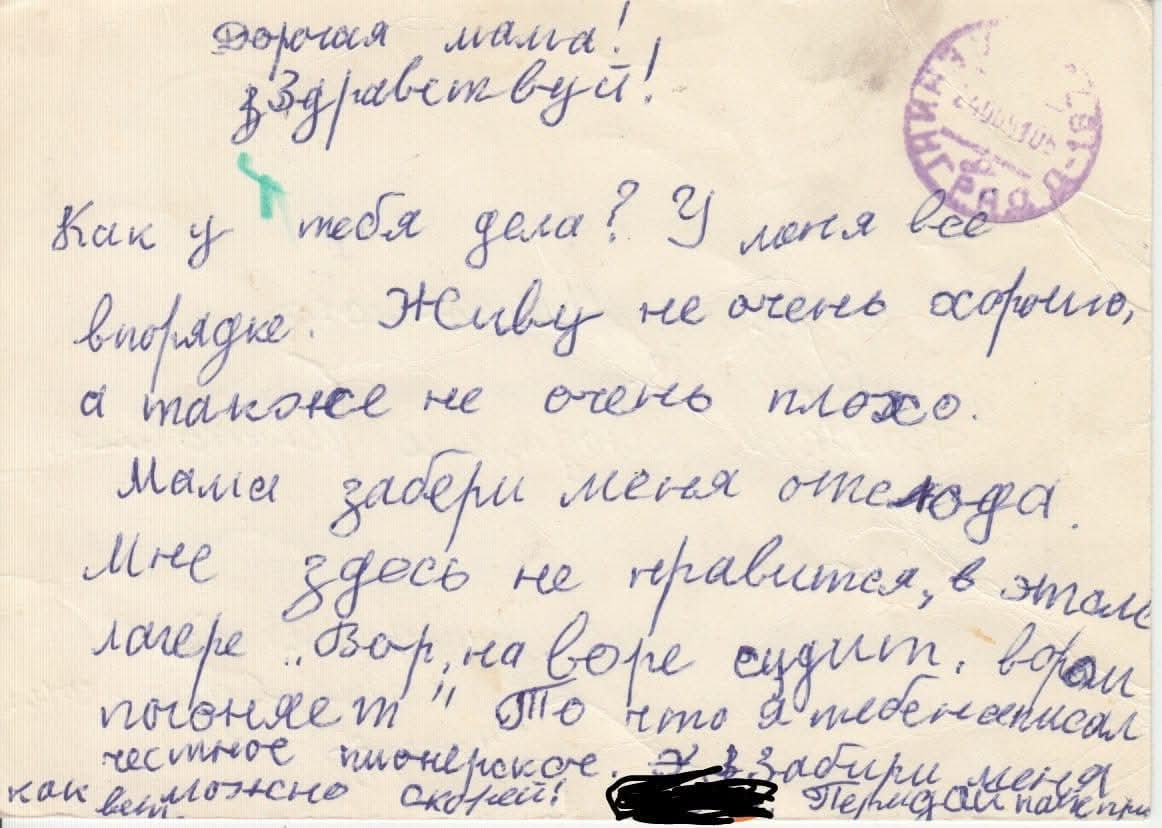 Дорогая мама!
Здравствуй!
Как у тебя дела? У меня все
впорядке. Живу не очень хорошо,
а также не очень плохо.
Мама забери меня отсюда.
Мне здесь не нравится, в этом
лагере „Вор, на воре сидит, вором
погоняет" То что я тебе написал
честное пионерское. Забири меня
как можно скорей! Перидай папе при
вет.